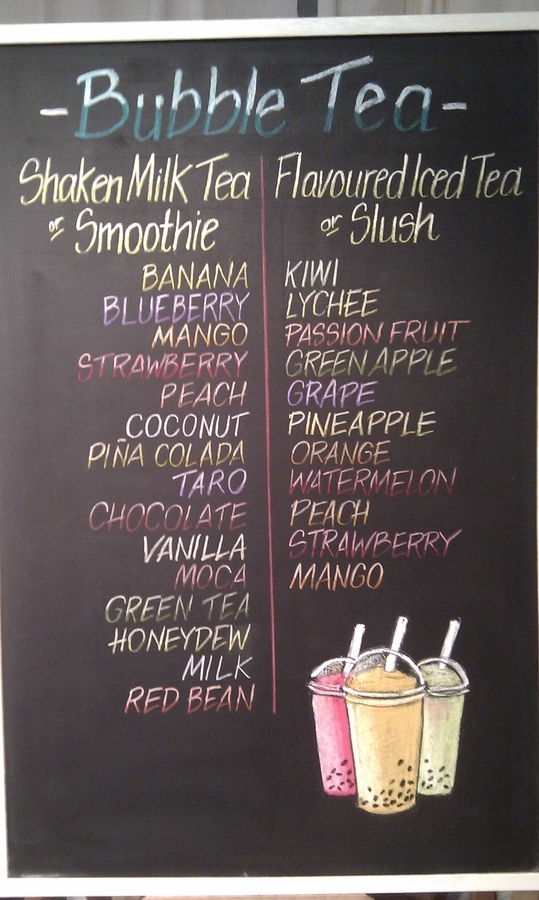 - Bubble Tea -
Shaken Milk Tea
or Smoothie
BANANA
BLUEBERRY
MANGO
STRAWBERRY
PEACH
COCONUT
PIÑA COLADA
TARO
CHOCOLATE
VANILLA
MOCA
GREEN TEA
HONEYDEW
MILK
RED BEAN
Flavoured Iced Tea
or Slush
KIWI
LYCHEE
PASSION FRUIT
GREEN APPLE
GRAPE
PINEAPPLE
ORANGE
WATERMELON
PEACH
STRAWBERRY
MANGO